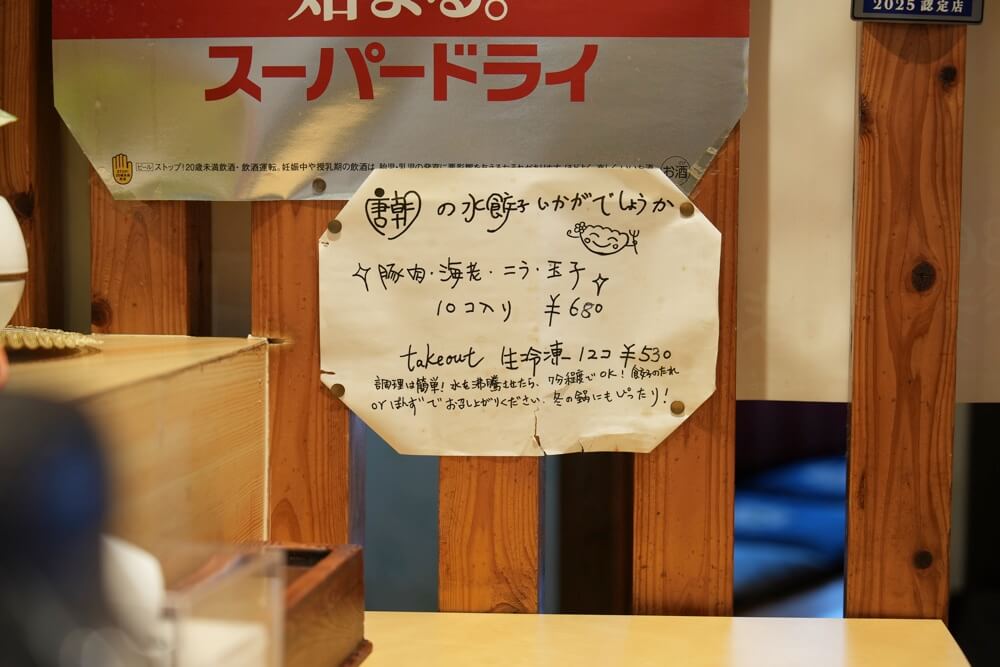 始まる。
スーパードライ
2025 認定店
ビール ストップ!20歳未満飲酒・飲酒運転。妊娠中や授乳期の飲酒は、胎児・乳児の発育に悪影響を与えるおそれがあります。
お酒
の水餃子いかがでしょうか
豚肉・海老・ニラ・玉子
10コ入り ¥680
takeout 生冷凍 12コ ¥530
調理は簡単!水を沸騰させたら、7分程度でOK!餃子のたれ
orぽんずでお召し上がりください。冬の鍋にもぴったり!